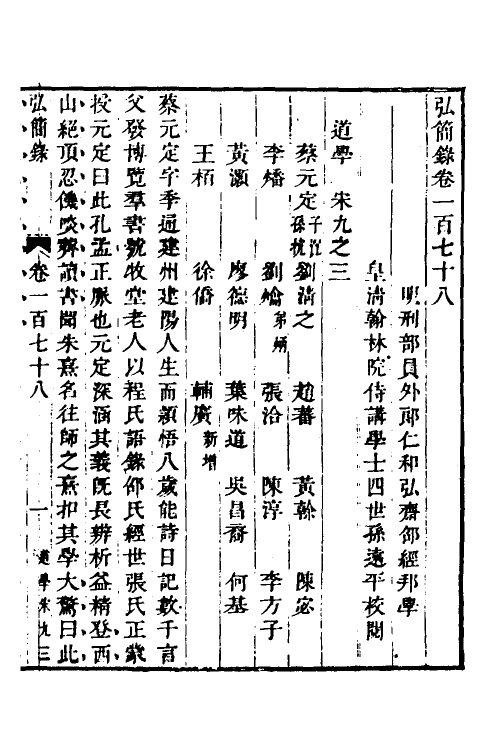 弘簡錄卷一百七十八
明刑部員外郎仁和弘齋邵經邦學
皇清翰林院侍講學士四世孫遠平校閱
道學 宋九之三
蔡元定子沉孫抗 劉清之 趙蕃 黃榦 陳宓
李燔 劉爚弟炳 張洽 陳淳 李方子
黃灝 廖德明 葉味道 吳昌裔 何基
王柏 徐僑 輔廣新增
蔡元定字季通建州建陽人生而穎悟八歲能詩日記數千言
父發博覽羣書號牧堂老人以程氏語錄邵氏經世張氏正蒙
授元定曰此孔孟正脈也元定深涵其義旣長辨析益精登西
山絕頂忍饑啖薺讀書聞朱熹名往師之熹扣其學大驚曰此
弘簡錄 卷一百七十八 一 道學宋九三